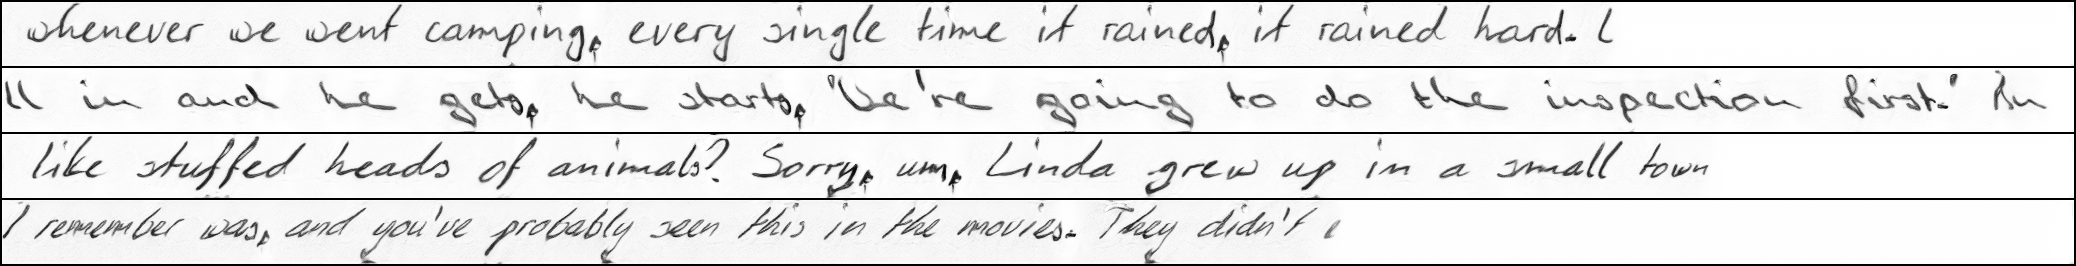 whenever we went camping, every single time it rained, it rained hard. I
ll in and he gets, he starts, "We're going to do the inspection first." An
like stuffed heads of animals? Sorry, um, Linda grew up in a small town
I remember was, and you've probably seen this in the movies. They didn't